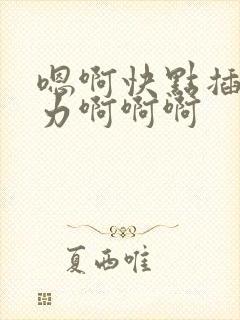 嗯啊快點插
力啊啊啊
夏西唯